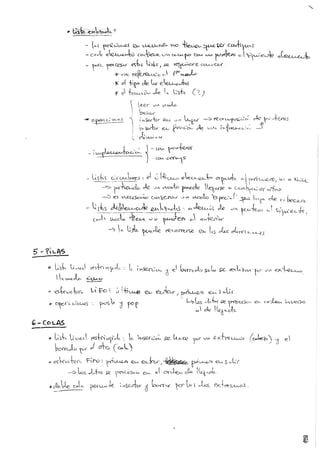 • Lista enlazada:
- las posiciones en memoria no tienen que ser contiguas
- cada elemento contiene un campo con un puntero al siguiente elemento
- para procesar estas listas, se requiere conocer
* una referencia al 1er nodo
* el tipo de los elementos
* el tamaño de la lista (?)
• operaciones
leer un nodo
buscar
insertar en un lugar → reorganización de punteros
insertar en posición
eliminar
- implementación
- con punteros
- con arrays
- Listas circulares: el último elemento apunta al primero
→ partiendo de un nodo puede llegarse a cualquier otro
→ es necesario conservar un nodo especial
- listas doblemente enlazadas: además de un puntero al siguiente,
cada nodo tiene un puntero al anterior
→ la lista puede recorrerse en las dos direcciones
5 - PILAS
• lista lineal restringida: la inserción y el borrado solo se realizan por un extremo
llamado cima
• estructura LIFO: último en entrar, primero en salir
• operaciones: push y pop
→ los datos se procesan en orden inverso
al de llegada
6 - COLAS
• lista lineal restringida: la inserción se hace por un extremo (cabeza) y el
borrado por el otro (cola)
• estructura FIFO: primero en entrar, primero en salir
→ los datos se procesan en el orden de llegada
• doble cola: permite insertar y borrar por los dos extremos.